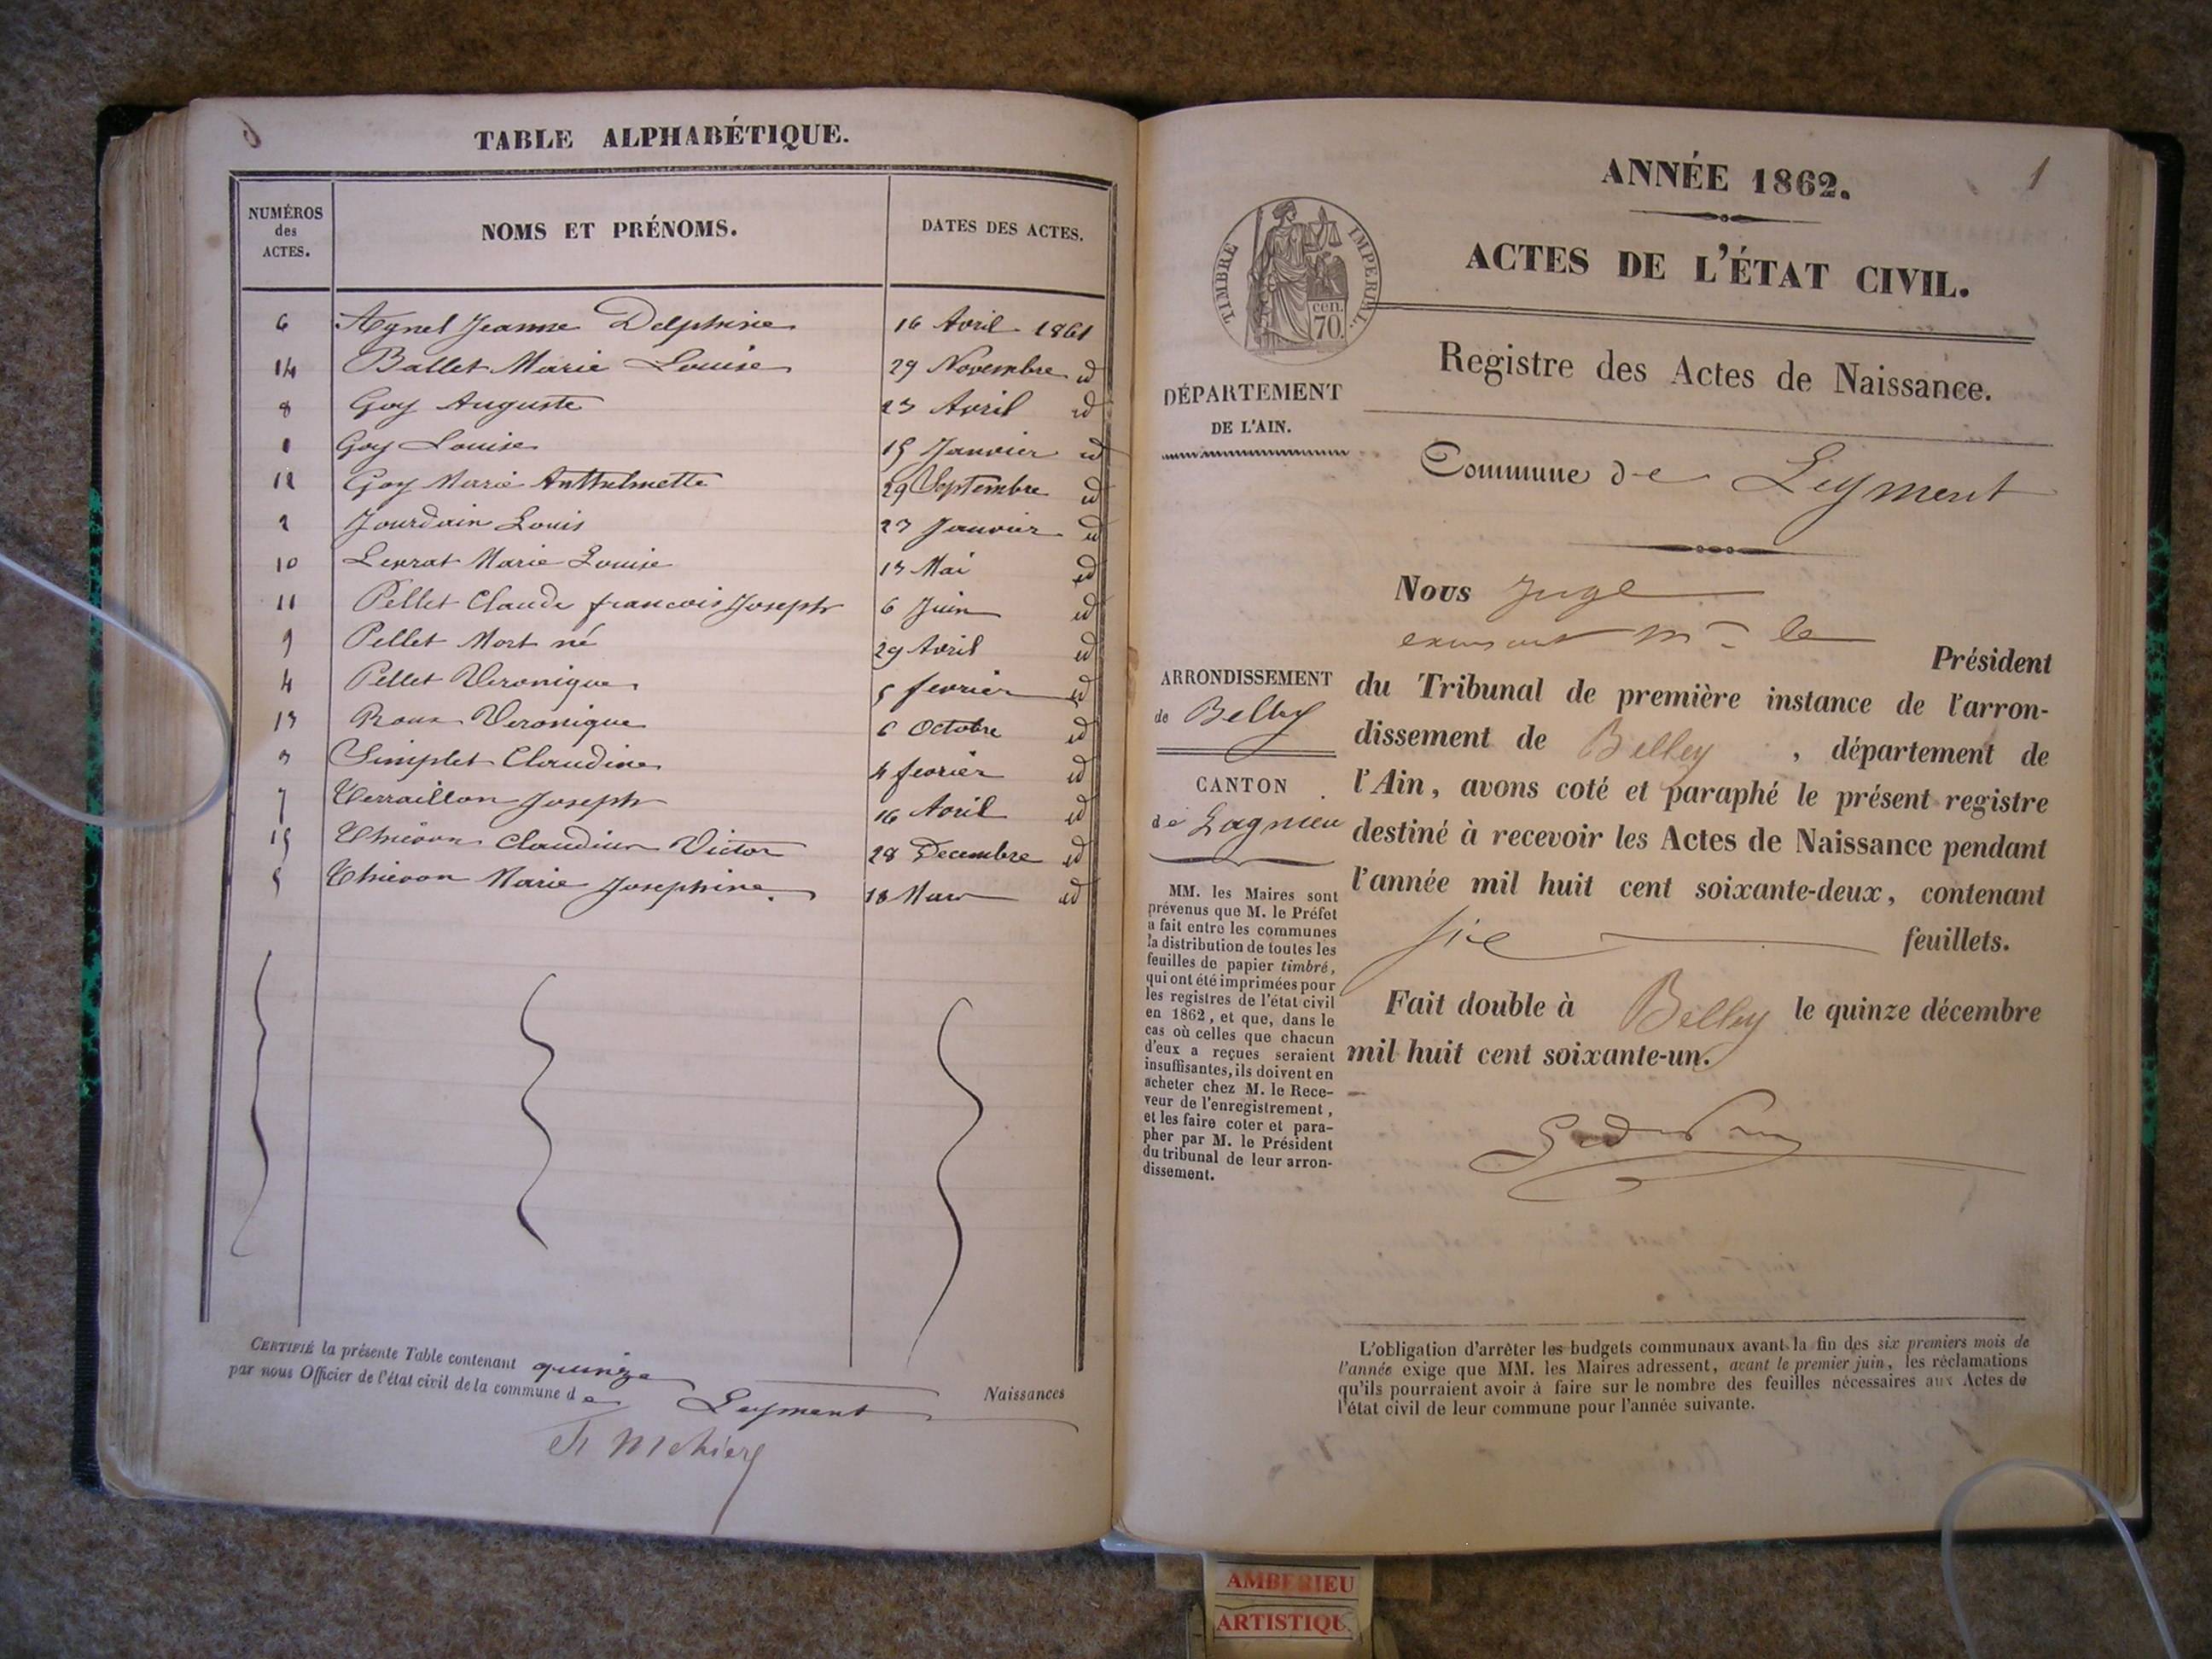 TABLE ALPHABÉTIQUE.
NUMÉROS des ACTES. NOMS ET PRÉNOMS. DATES DES ACTES.
6 Agnel Jeanne Delphine 16 Avril 1861
14 Ballet Marie Louise 29 Novembre id
8 Goy Auguste 23 Avril id
1 Goy Louise 15 Janvier id
12 Goy Marie Anthelmette 29 Septembre id
2 Jourdain Louis 23 Janvier id
10 Leyrat Marie Louise 13 Mai id
11 Pellet Claude francois Joseph 6 Juin id
9 Pellet Mort né 29 Avril id
4 Pellet Veronique 5 fevrier id
13 Roux Veronique 6 Octobre id
3 Simplet Claudine 4 fevrier id
7 Verraillon Joseph 16 Avril id
15 Thiévon Claudius Victor 28 Decembre id
5 Thiévon Marie Josephine. 18 Mars id
CERTIFIÉ la présente Table contenant quinze Naissances
par nous Officier de l'état civil de la commune de Leyment
1
ANNÉE 1862.
ACTES DE L'ÉTAT CIVIL.
TIMBRE IMPERIAL.
cen.
70.
Registre des Actes de Naissance.
DÉPARTEMENT
DE L'AIN.
Commune de Leyment
Nous Juge
le
Président
ARRONDISSEMENT
de Belley
CANTON
de Lagnieu
MM. les Maires sont
prévenus que M. le Préfet
a fait entre les communes
la distribution de toutes les
feuilles de papier timbré,
qui ont été imprimées pour
les registres de l'état civil
en 1862, et que, dans le
cas où celles que chacun
d'eux a reçues seraient
insuffisantes, ils doivent en
acheter chez M. le Rece-
veur de l'enregistrement,
et les faire coter et para-
pher par M. le Président
du tribunal de leur arron-
dissement.
du Tribunal de première instance de l'arron-
dissement de Belley, département de
l'Ain, avons coté et paraphé le présent registre
destiné à recevoir les Actes de Naissance pendant
l'année mil huit cent soixante-deux, contenant
six feuillets.
Fait double à Belley le quinze décembre
mil huit cent soixante-un.
L'obligation d'arrêter les budgets communaux avant la fin des six premiers mois de
l'année exige que MM. les Maires adressent, avant le premier juin, les réclamations
qu'ils pourraient avoir à faire sur le nombre des feuilles nécessaires aux Actes de
l'état civil de leur commune pour l'année suivante.
AMBERIEU
ARTISTIQU